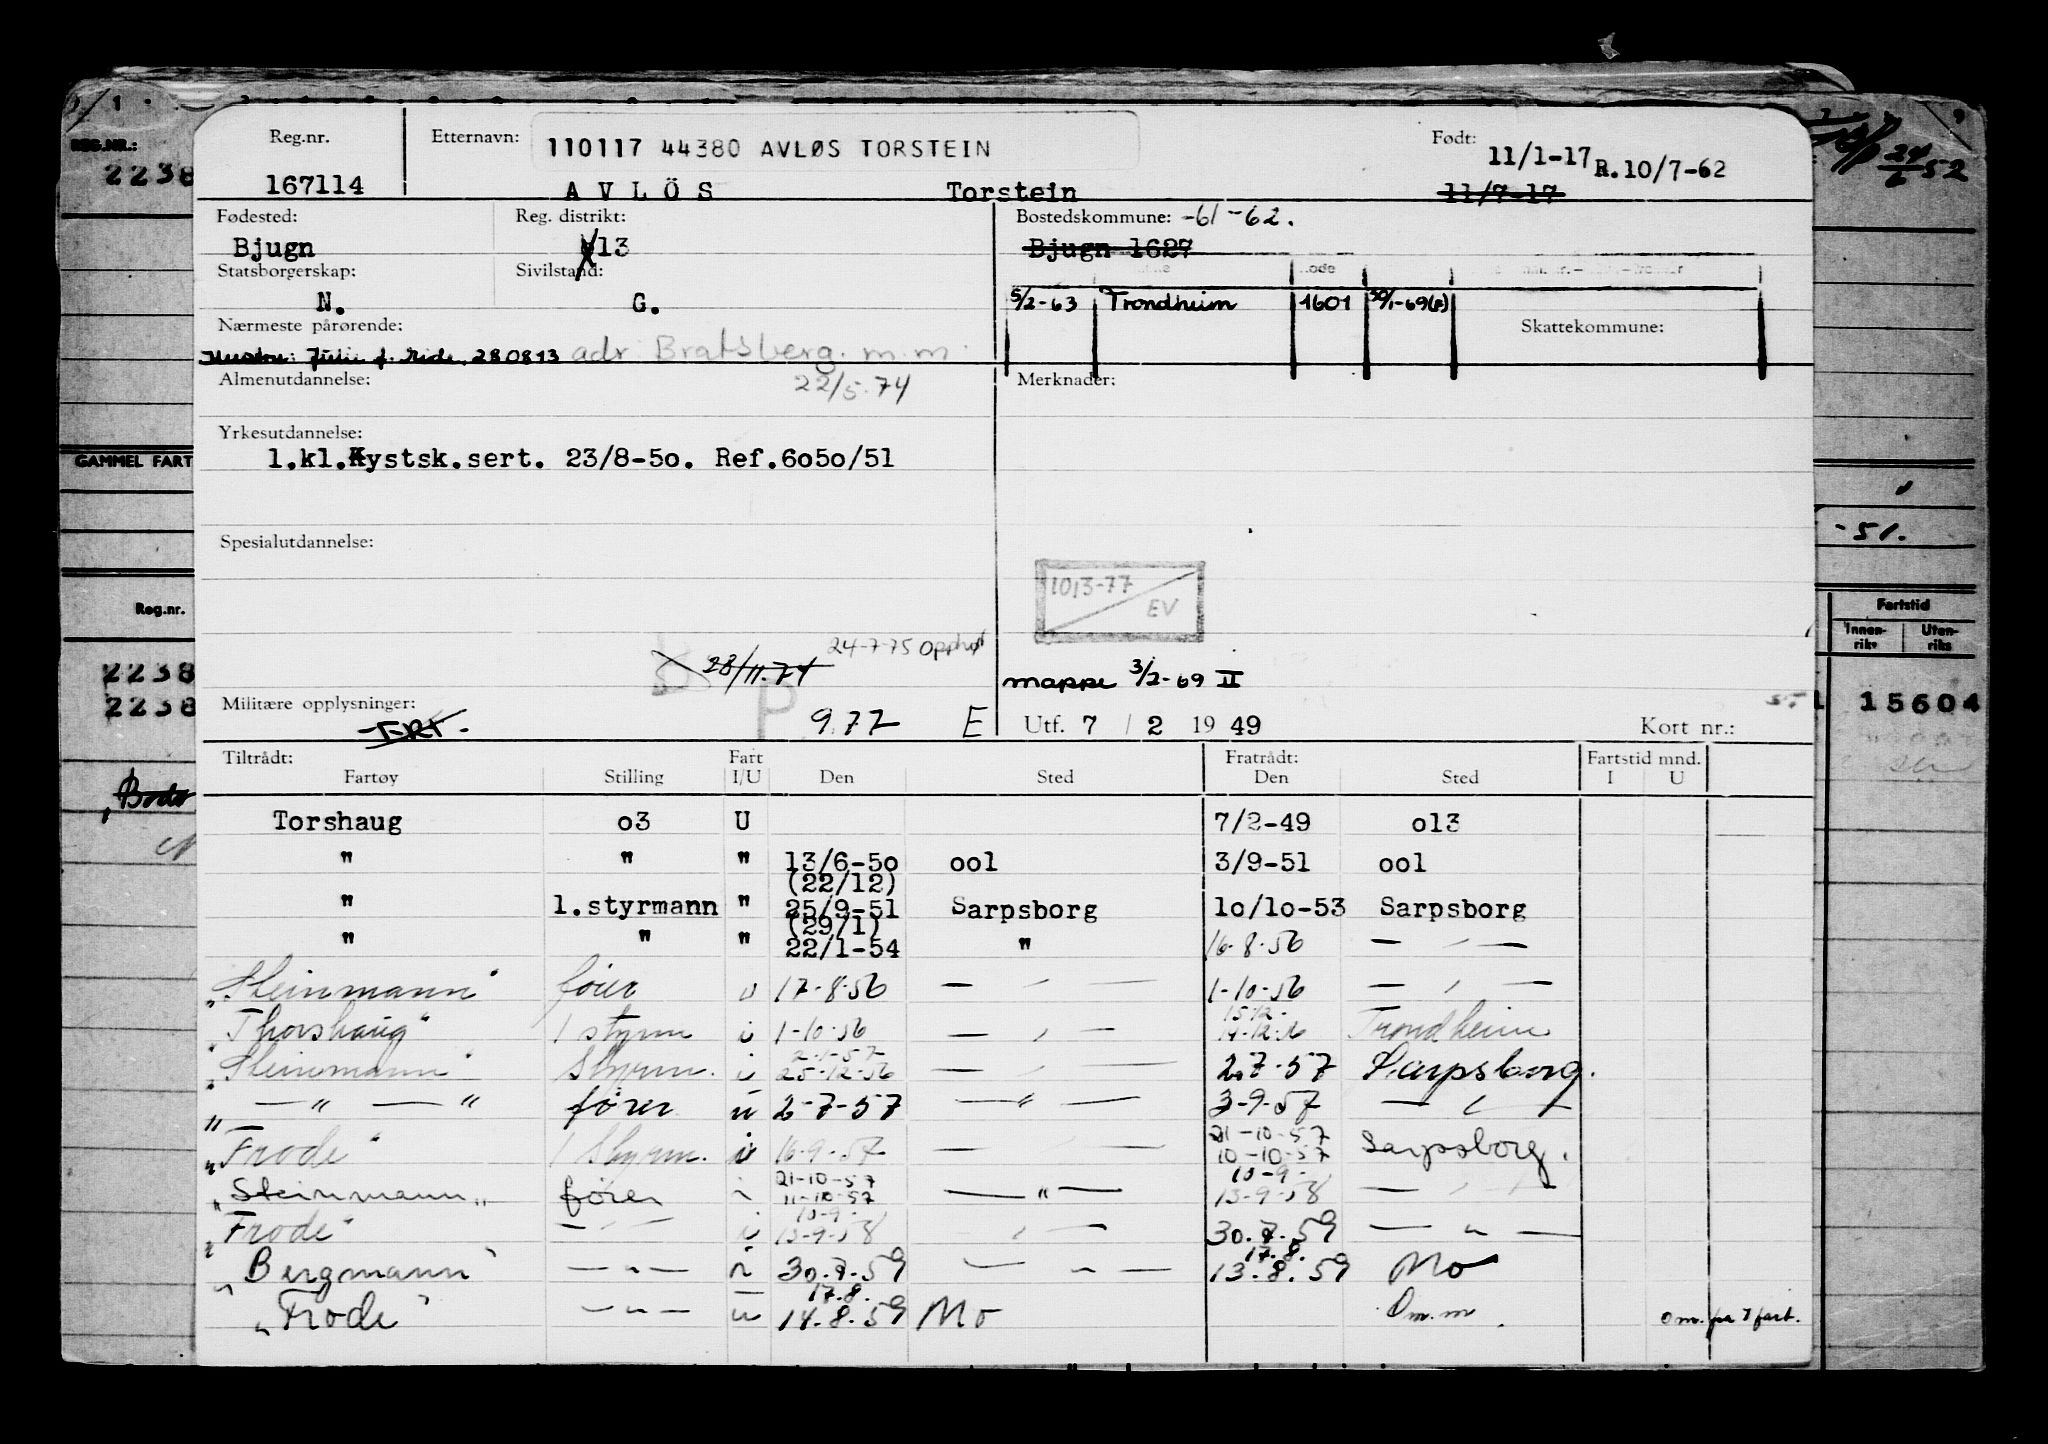 Reg.nr. Etternavn: 110117 44380 AVLØS TORSTEIN Født: 11/1-17 R.10/7-62
167114 AVLÖS Torstein 11/7-17
Fødested: Reg. distrikt: Bostedskommune: -61-62.
Bjugn 13 Bjugn 1627
Statsborgerskap: Sivilstand:
N. G. 5/2-63 Trondheim 1601 30/1-69(A)
Nærmeste pårørende: Skattekommune:
Hustru: Julie f. 280813 adr Bratsberg. m.m.
Almenutdannelse: 22/5.74 Merknader:
Yrkesutdannelse:
1.kl.Kystsk.sert. 23/8-50. Ref.6050/51
Spesialutdannelse:
1013-77
EV
24-7-75 Opphørt
28/11.74
mappe 3/2-69 II
Militære opplysninger: 9.77 E Utf. 7 / 2 1949 Kort nr.:
Tiltrådt: Fart Fratrådt: Fartstid mnd.
Fartøy Stilling I/U Den Sted Den Sted I U
Torshaug o3 U 7/2-49 o13
" " " 13/6-5o oo1 3/9-51 oo1
(22/12)
" 1.styrmann " 25/9-51 Sarpsborg 1o/1o-53 Sarpsborg
(29/1)
" " " 22/1-54 " 16-8-56 — " —
"Steinmann" fører u 17-8-56 — " — 1-10-56 — " —
15.12.
"Thorshaug" 1 styrm i 1-10-56 — " — 14-12-56 Trondheim
2-1-57
"Steinmann" Styrm. i 25-12-56 — " — 2.7-57 Sarpsborg.
" — " — " fører u 2-7-57 — " — 3-9-57 — " —
21-10-57
"Frode" 1 Styrm. i 16-9-57 — " — 10-10-57 Sarpsborg.
21-10-57 10-9-
"Steinmann" fører i 11-10-57 — " — 13-9-58 — " —
10-9-
"Frode" — " — i 13-9-58 — " — 30.7.59 — " —
17.8.
"Bergmann" — " — i 30.7.59 — " — 13.8.59 Mo
17.8.
"Frode" — " — u 14.8.59 Mo Om.m. om. fra 7 fart.
REG.NR.:
2238
GAMMEL FART
Reg.nr.
2238
2238
Bodø
24/6 52
-51.
Fartstid
Innen-riks Uten-riks
15604